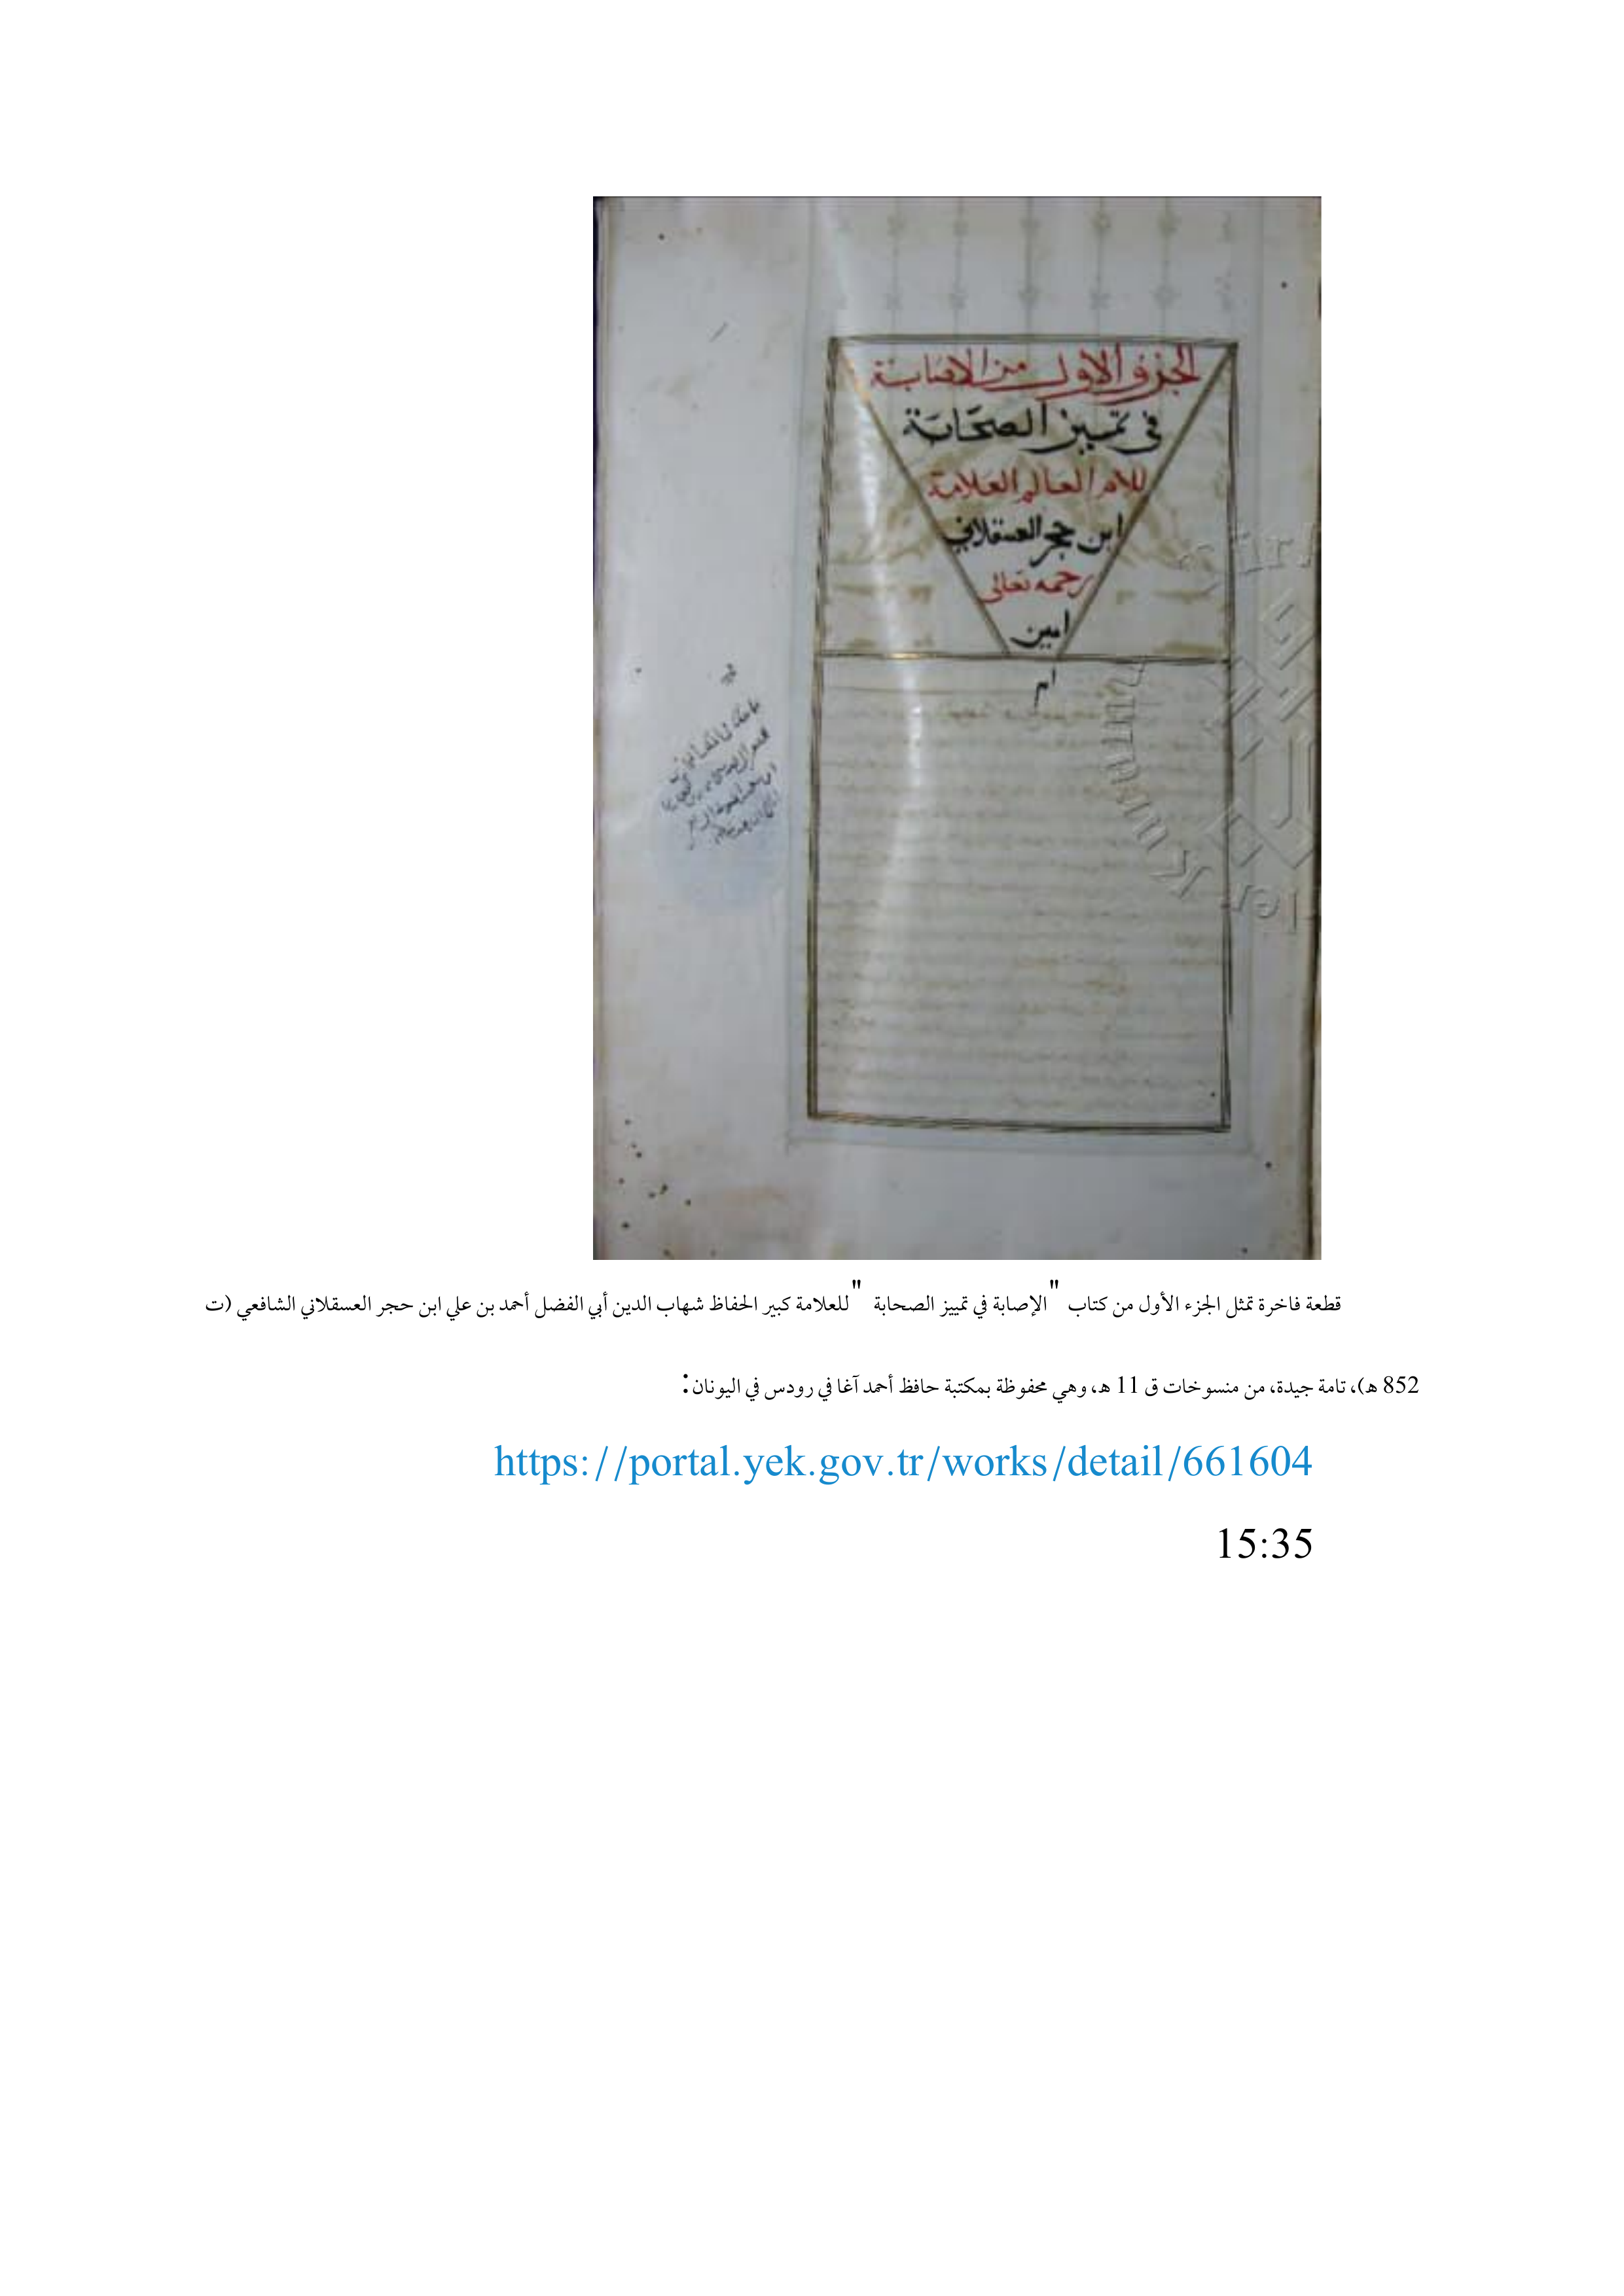 الجزؤ الأول من الاصابة
في تمييز الصحابة
العالم العلامة
ابن حجر العسقلاني
رحمه تعالى
امين
ام
قطعة فاخرة تمثل الجزء الأول من كتاب "الإصابة في تمييز الصحابة" للعلامة كبير الحفاظ شهاب الدين أبي الفضل أحمد بن علي ابن حجر العسقلاني الشافعي (ت
852 هـ)، تامة جيدة، من منسوخات ق 11 هـ، وهي محفوظة بمكتبة حافظ أحمد آغا في رودس في اليونان:
https://portal.yek.gov.tr/works/detail/661604
15:35